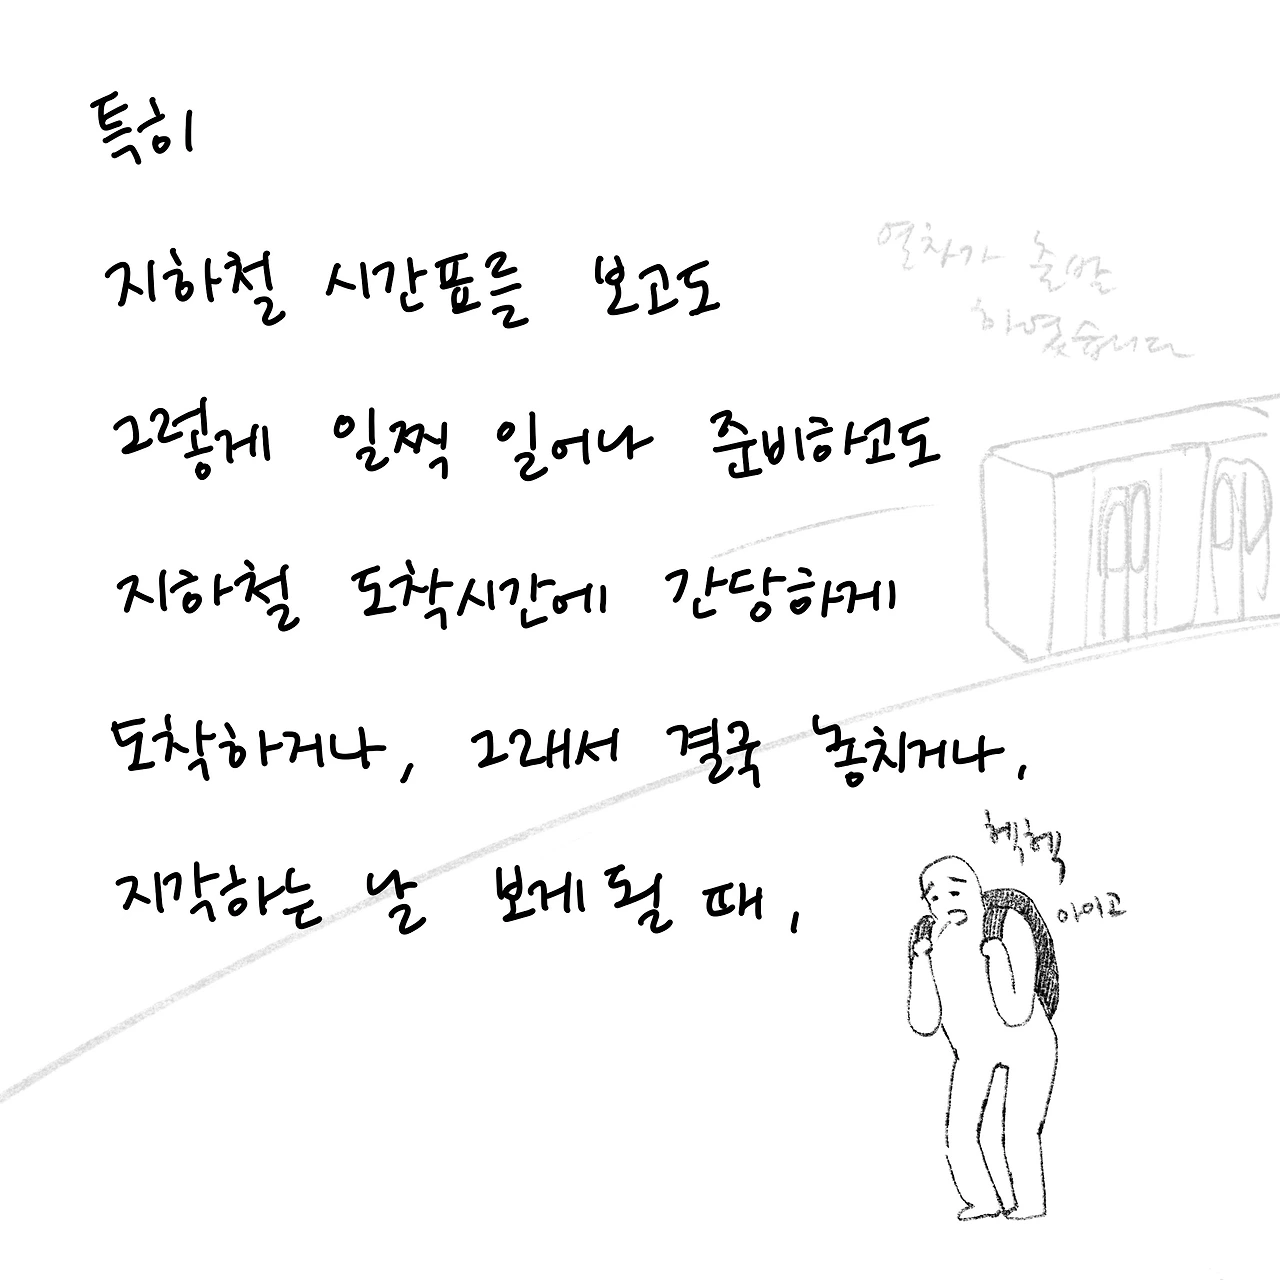 특히
지하철 시간표를 보고도
열차가 출발
하였습니다
그렇게 일찍 일어나 준비하고도
지하철 도착시간에 간당하게
도착하거나, 그래서 결국 놓치거나,
헥헥
지각하는 날 보게 될 때,
아이고